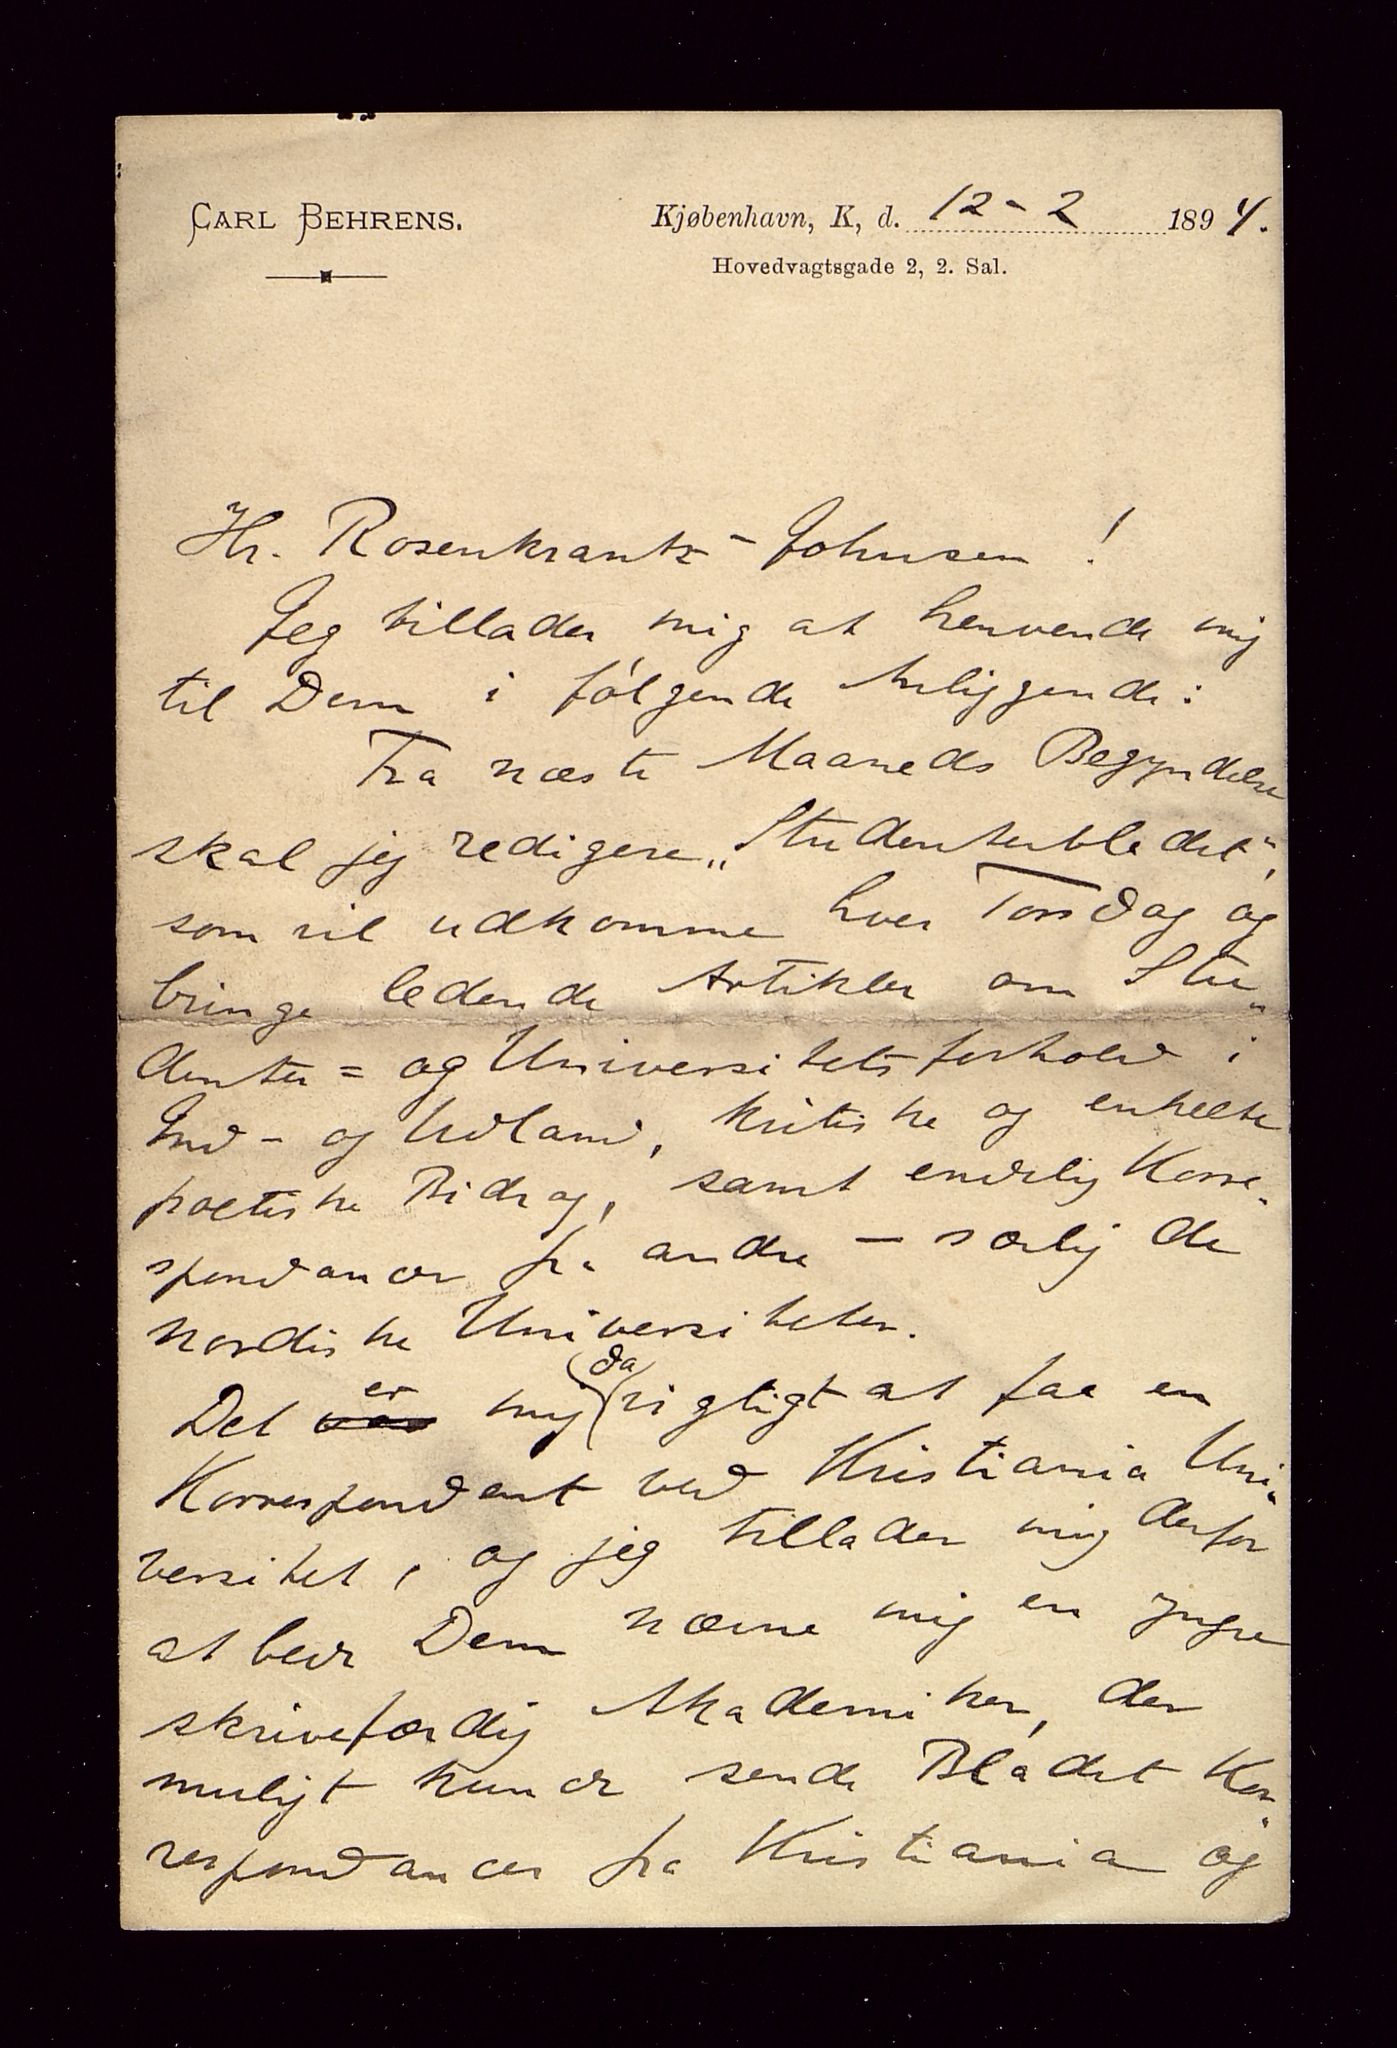 CARL BEHRENS.
Kjøbenhavn, K, d. 12-2 1894.
Hovedvagtsgade 2, 2. Sal.
Hr. Rosenkrantz-Johnsen!
Jeg tillader mig at henvende mig
til Dem i følgende Anliggende:
Fra næste Maaneds Begyndelse
skal jeg redigere „Studenterbladet“,
som vil udkomme hver Torsdag og
bringe ledende Artikler om Stu„
denter= og Universitetsforhold i
Ind- og Udland, kritiske og enkelte
poetiske Bidrag, samt endelig Korre„
spondancer fra andre - særlig de
nordiske Universiteter.
Det er mig da vigtigt at faa en
Korrespondent ved Kristiania Uni„
versitet, og jeg tillader mig derfor
at bede Dem nævne mig en yngre
skrivefærdig Akademiker, der
muligt kunde sende Bladet Kor„
respondancer fra Kristiania og